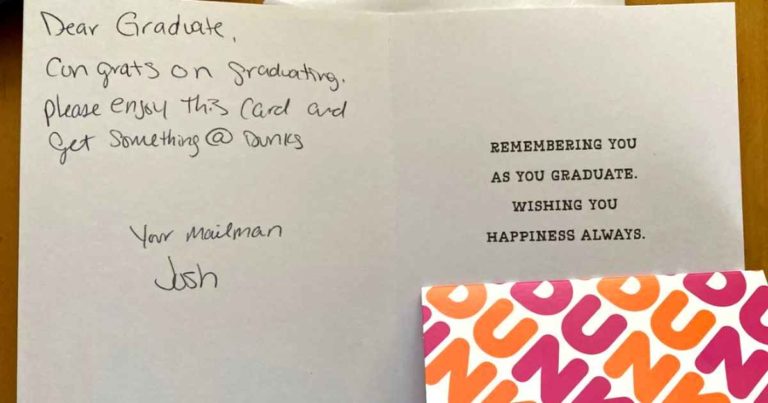 Dear Graduate,
Congrats on graduating.
please enjoy this card and
get something @ Dunks
Your Mailman
Josh
REMEMBERING YOU
AS YOU GRADUATE.
WISHING YOU
HAPPINESS ALWAYS.
DUNK
DUNK
DUNK